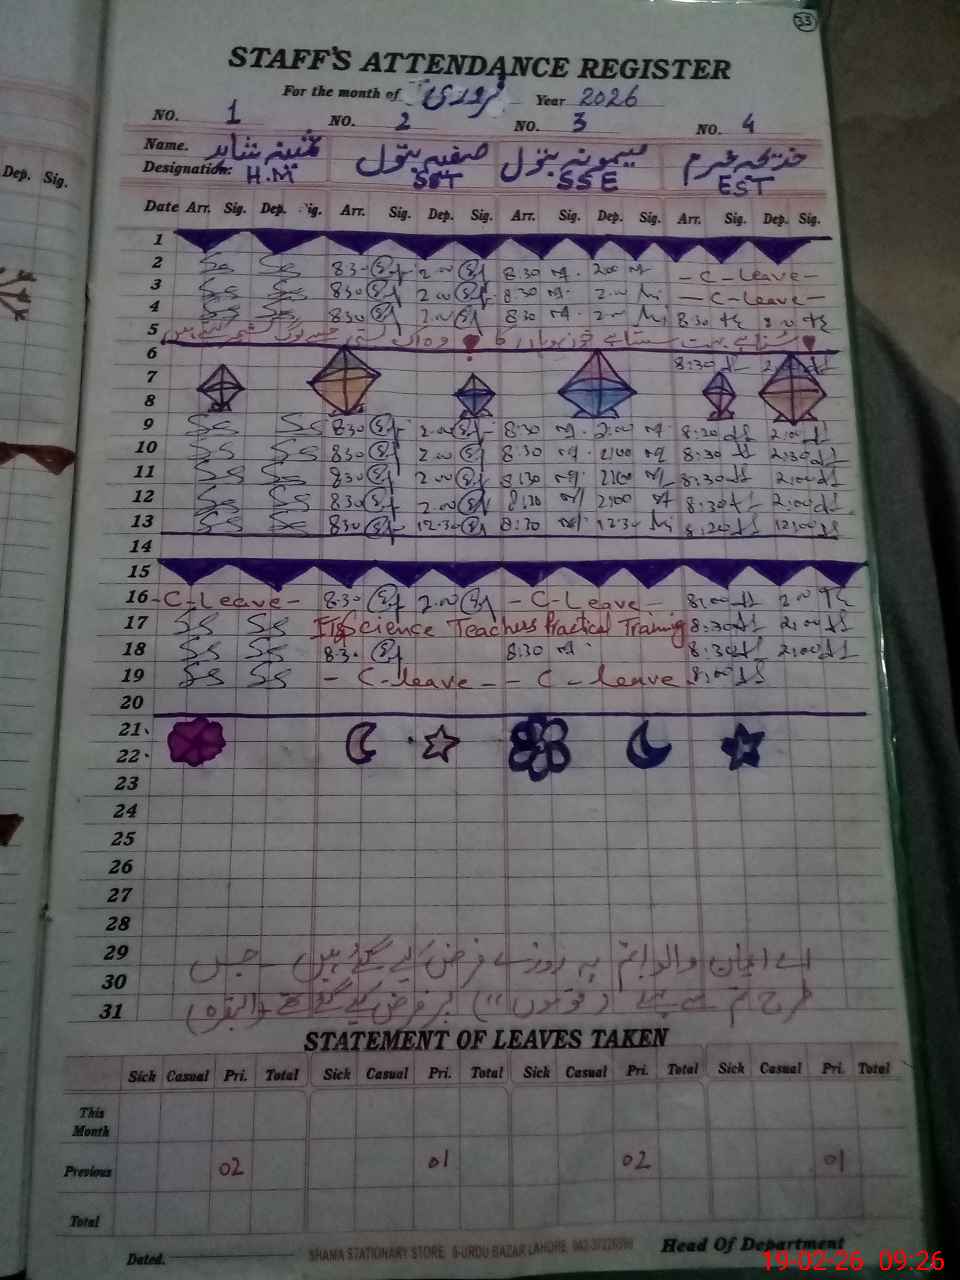 33
STAFF'S ATTENDANCE REGISTER
For the month of فروری Year 2026
NO. 1 NO. 2 NO. 3 NO. 4
Name. ثمینہ شاہد صفیہ بتول میمونہ بتول خدیجہ خرم
Designation: H.M SST SSE EST
Date Arr. Sig. Dep. Sig. Arr. Sig. Dep. Sig. Arr. Sig. Dep. Sig. Arr. Sig. Dep. Sig.
Dep. Sig.
1
2 8.30 2.00 8.30 2.00 - C - Leave -
3 8.30 2.00 8.30 2.00 - C - Leave -
4 8.30 2.00 8.30 2.00 8.30
5
6 8:30
7
8
9 8.30 2.00 8.30 2.00 8:30 2:00
10 8.30 2.00 8.30 2:00 8:30 2:30
11 8.30 2.00 8:30 2:00 8:30 2:00
12 8.30 2.00 8:30 2:00 8:30 2:00
13 8.30 12.30 8:30 12:30 8:20 12:00
14
15
16 - C - Leave - 8.30 2.00 - C - Leave - 8:00 2.00
17 Science Teachers Practical Training 8:30 2:00
18 8.30 8.30 8:30 2:00
19 - C - leave - - C - leave 8:00
20
21
22
23
24
25
26
27
28
29 اے ایمان والو! تم پہ روزے فرض کیے گئے ہیں - جس
30
31 طرح تم سے پہلے (قوموں) پر فرض کیے گئے تھے (البقرہ)
STATEMENT OF LEAVES TAKEN
Sick Casual Pri. Total Sick Casual Pri. Total Sick Casual Pri. Total Sick Casual Pri. Total
This Month
Previous 02 01 02 01
Total
Dated. SHAMA STATIONARY STORE 8-URDU BAZAR LAHORE Head Of Department
19-02-26 09:26